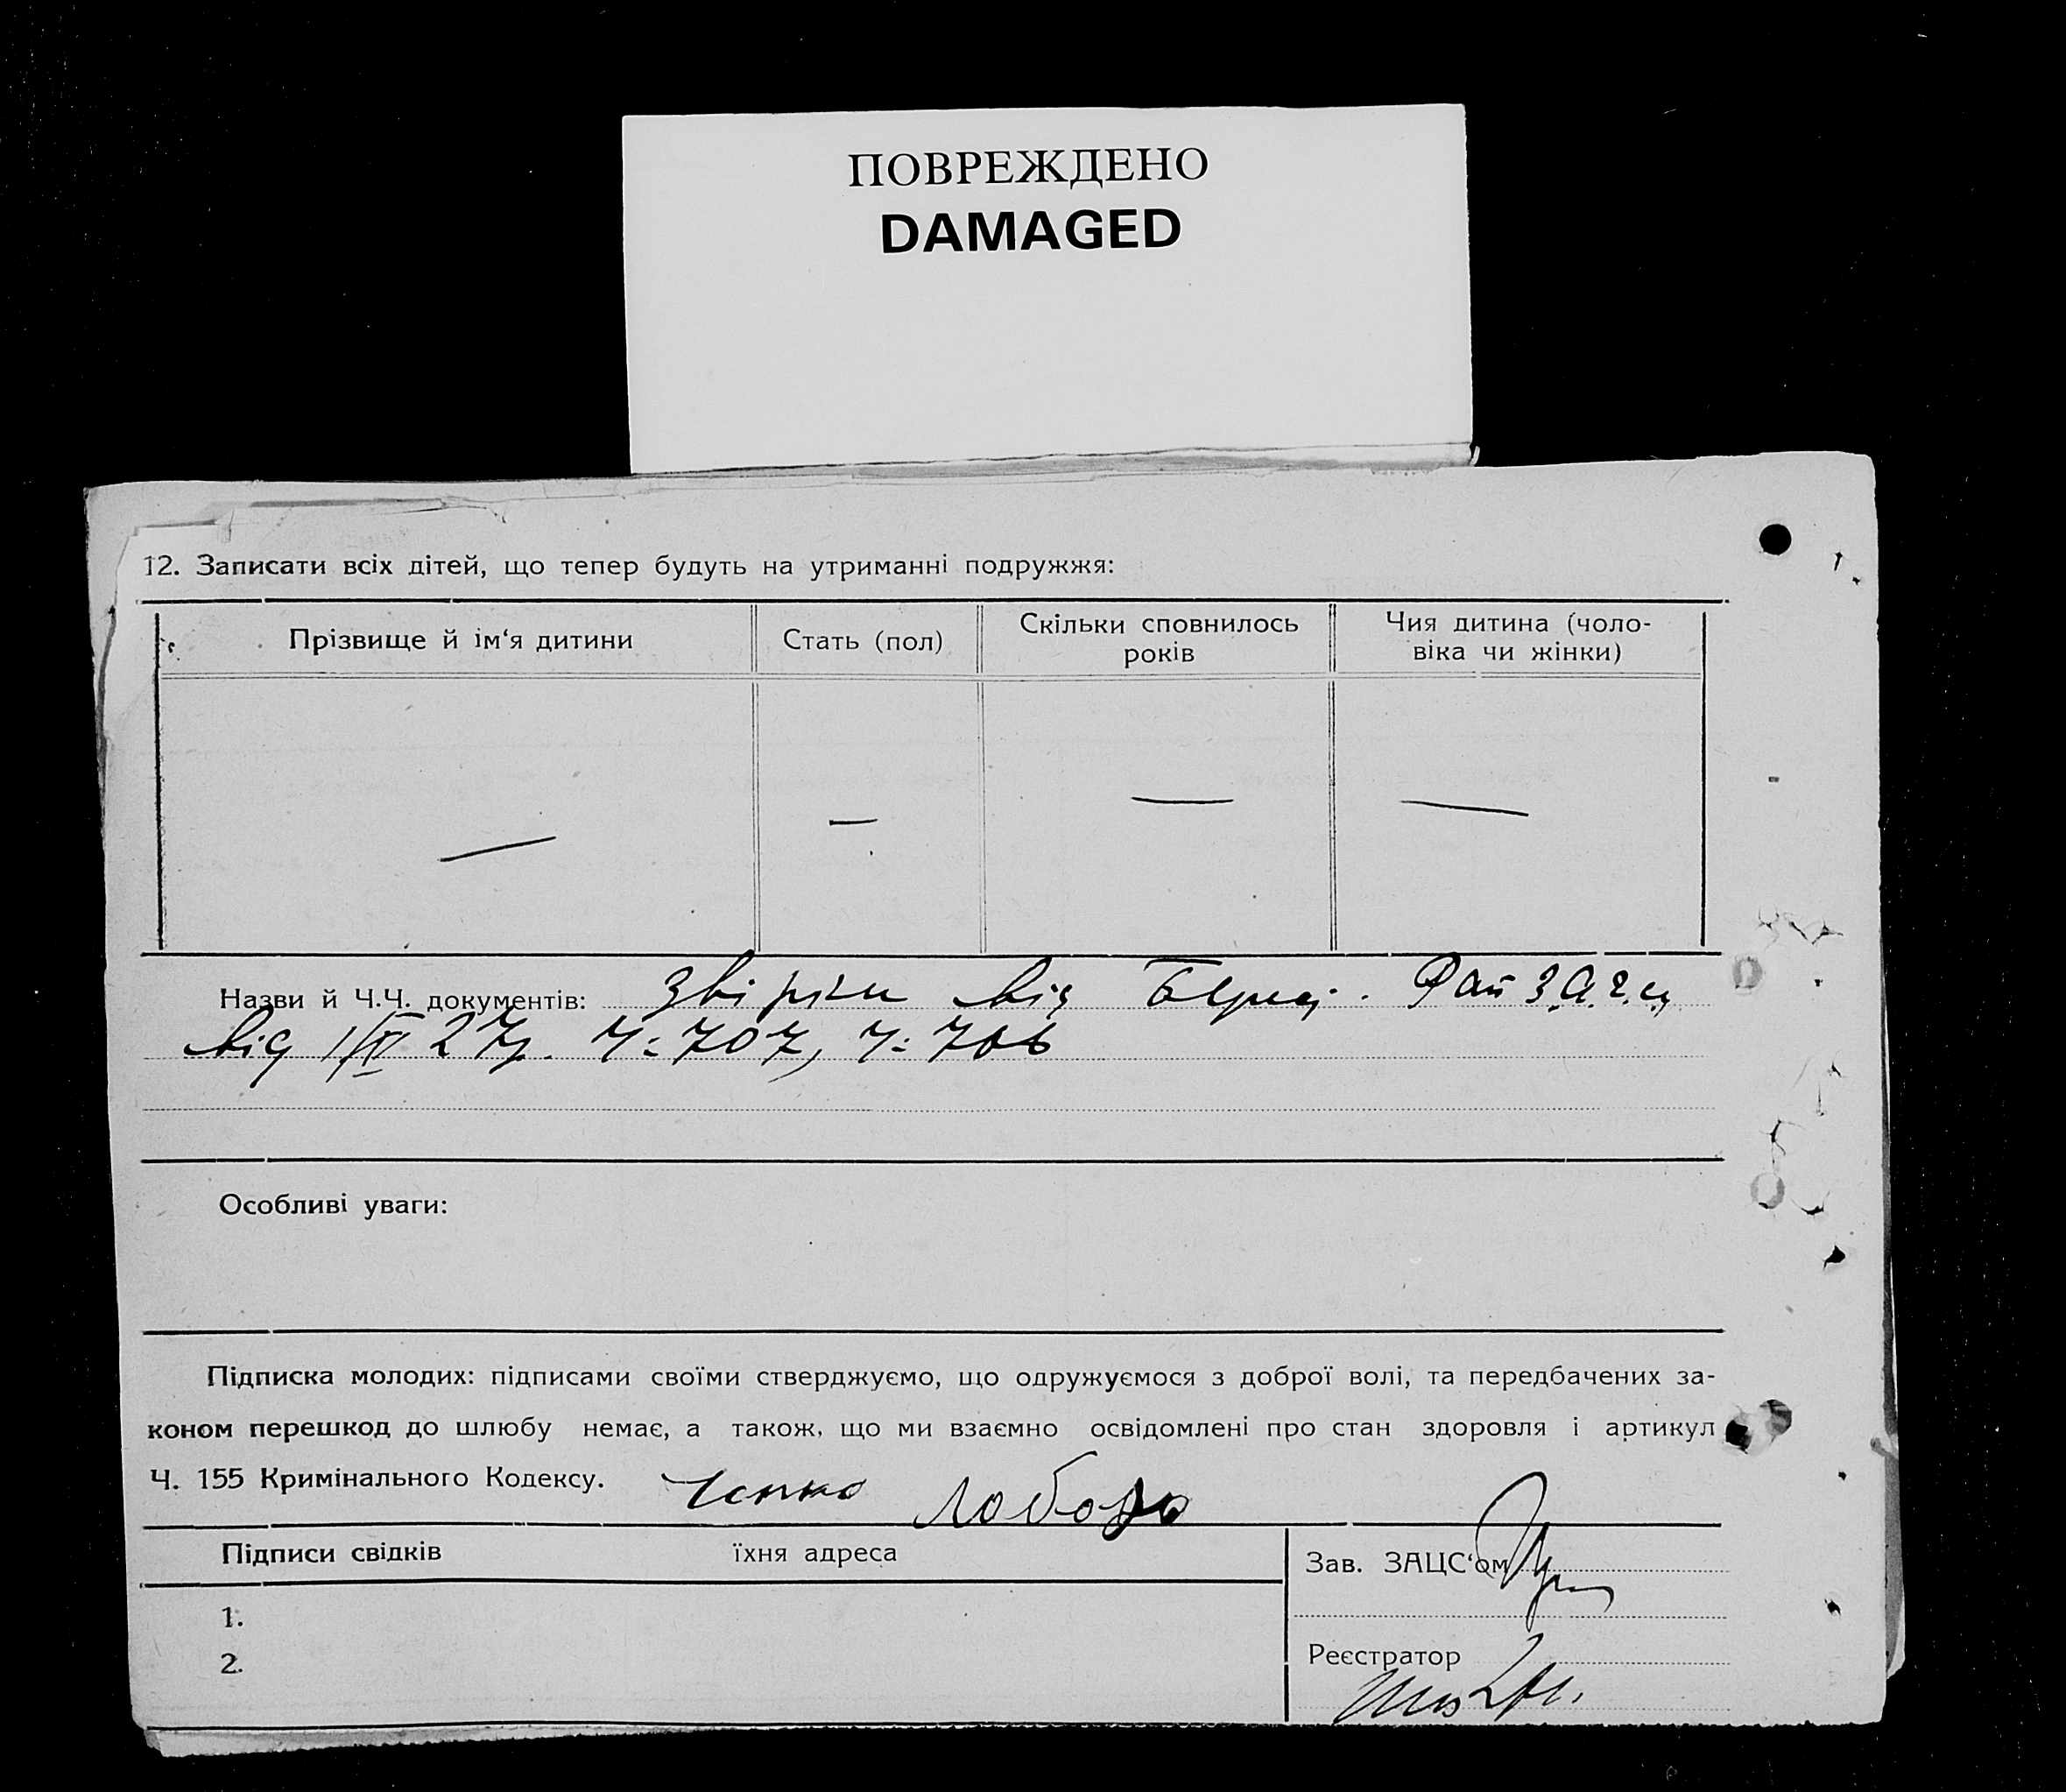 ПОВРЕЖДЕНО
DAMAGED
12. Записати всіх дітей, що тепер будуть на утриманні подружжя:
Прізвище й ім'я дитини
Стать (пол)
Скільки сповнилось
років
Чия дитина (чоло-
віка чи жінки)
Назви й Ч.Ч. документів: від
від 27р. Ч: 707, Ч: 706
Особливі уваги:
Підписка молодих: підписами своїми стверджуємо, що одружуємося з доброї волі, та передбачених за-
коном перешкод до шлюбу немає, а також, що ми взаємно освідомлені про стан здоровля і артикул
Ч. 155 Кримінального Кодексу. Лобода
Підписи свідків їхня адреса
1.
2.
Зав. ЗАЦС'ом
Реєстратор